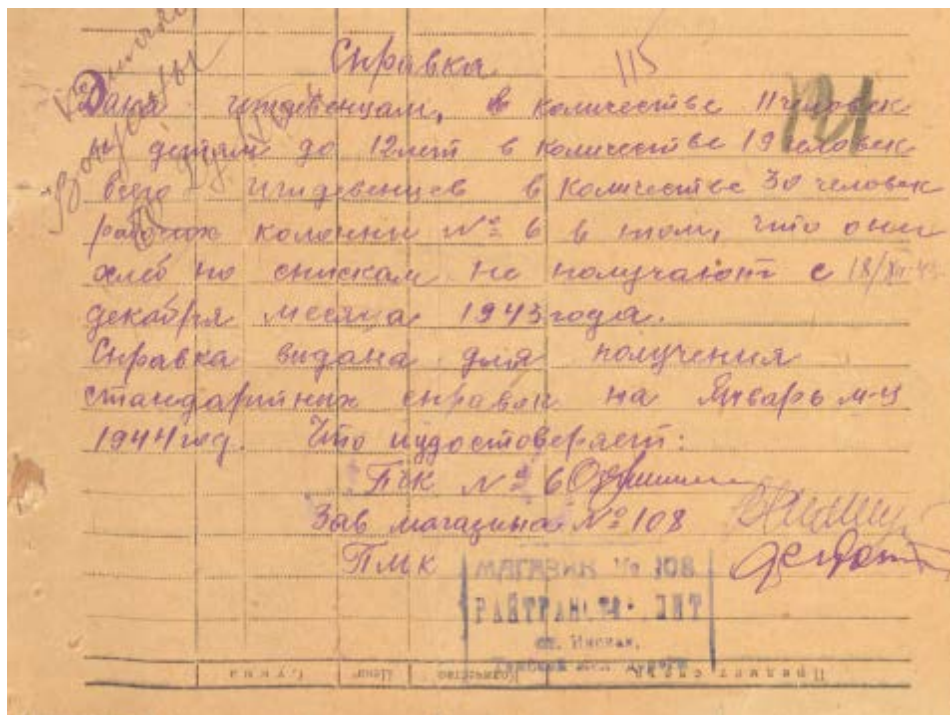 Справка
115
Дана иждевенцам, в количестве 11 человек
и детям до 12 лет в количестве 19 человек
всего иждевенцев в количестве 30 человек
рабочих колонны № 6 в том, что они
хлеб по спискам не получают с 18/XII-43
декабря месяца 1943 года.
Справка выдана для получения
стандартных справок на Январь м-ц
1944 год. Что и удостоверяет:
№ 6
Зав магазина № 108
ПМК
МАГАЗИН № 108
ст. Инская,
Томской жел. дороги
Предмет Количество Цена Сумма